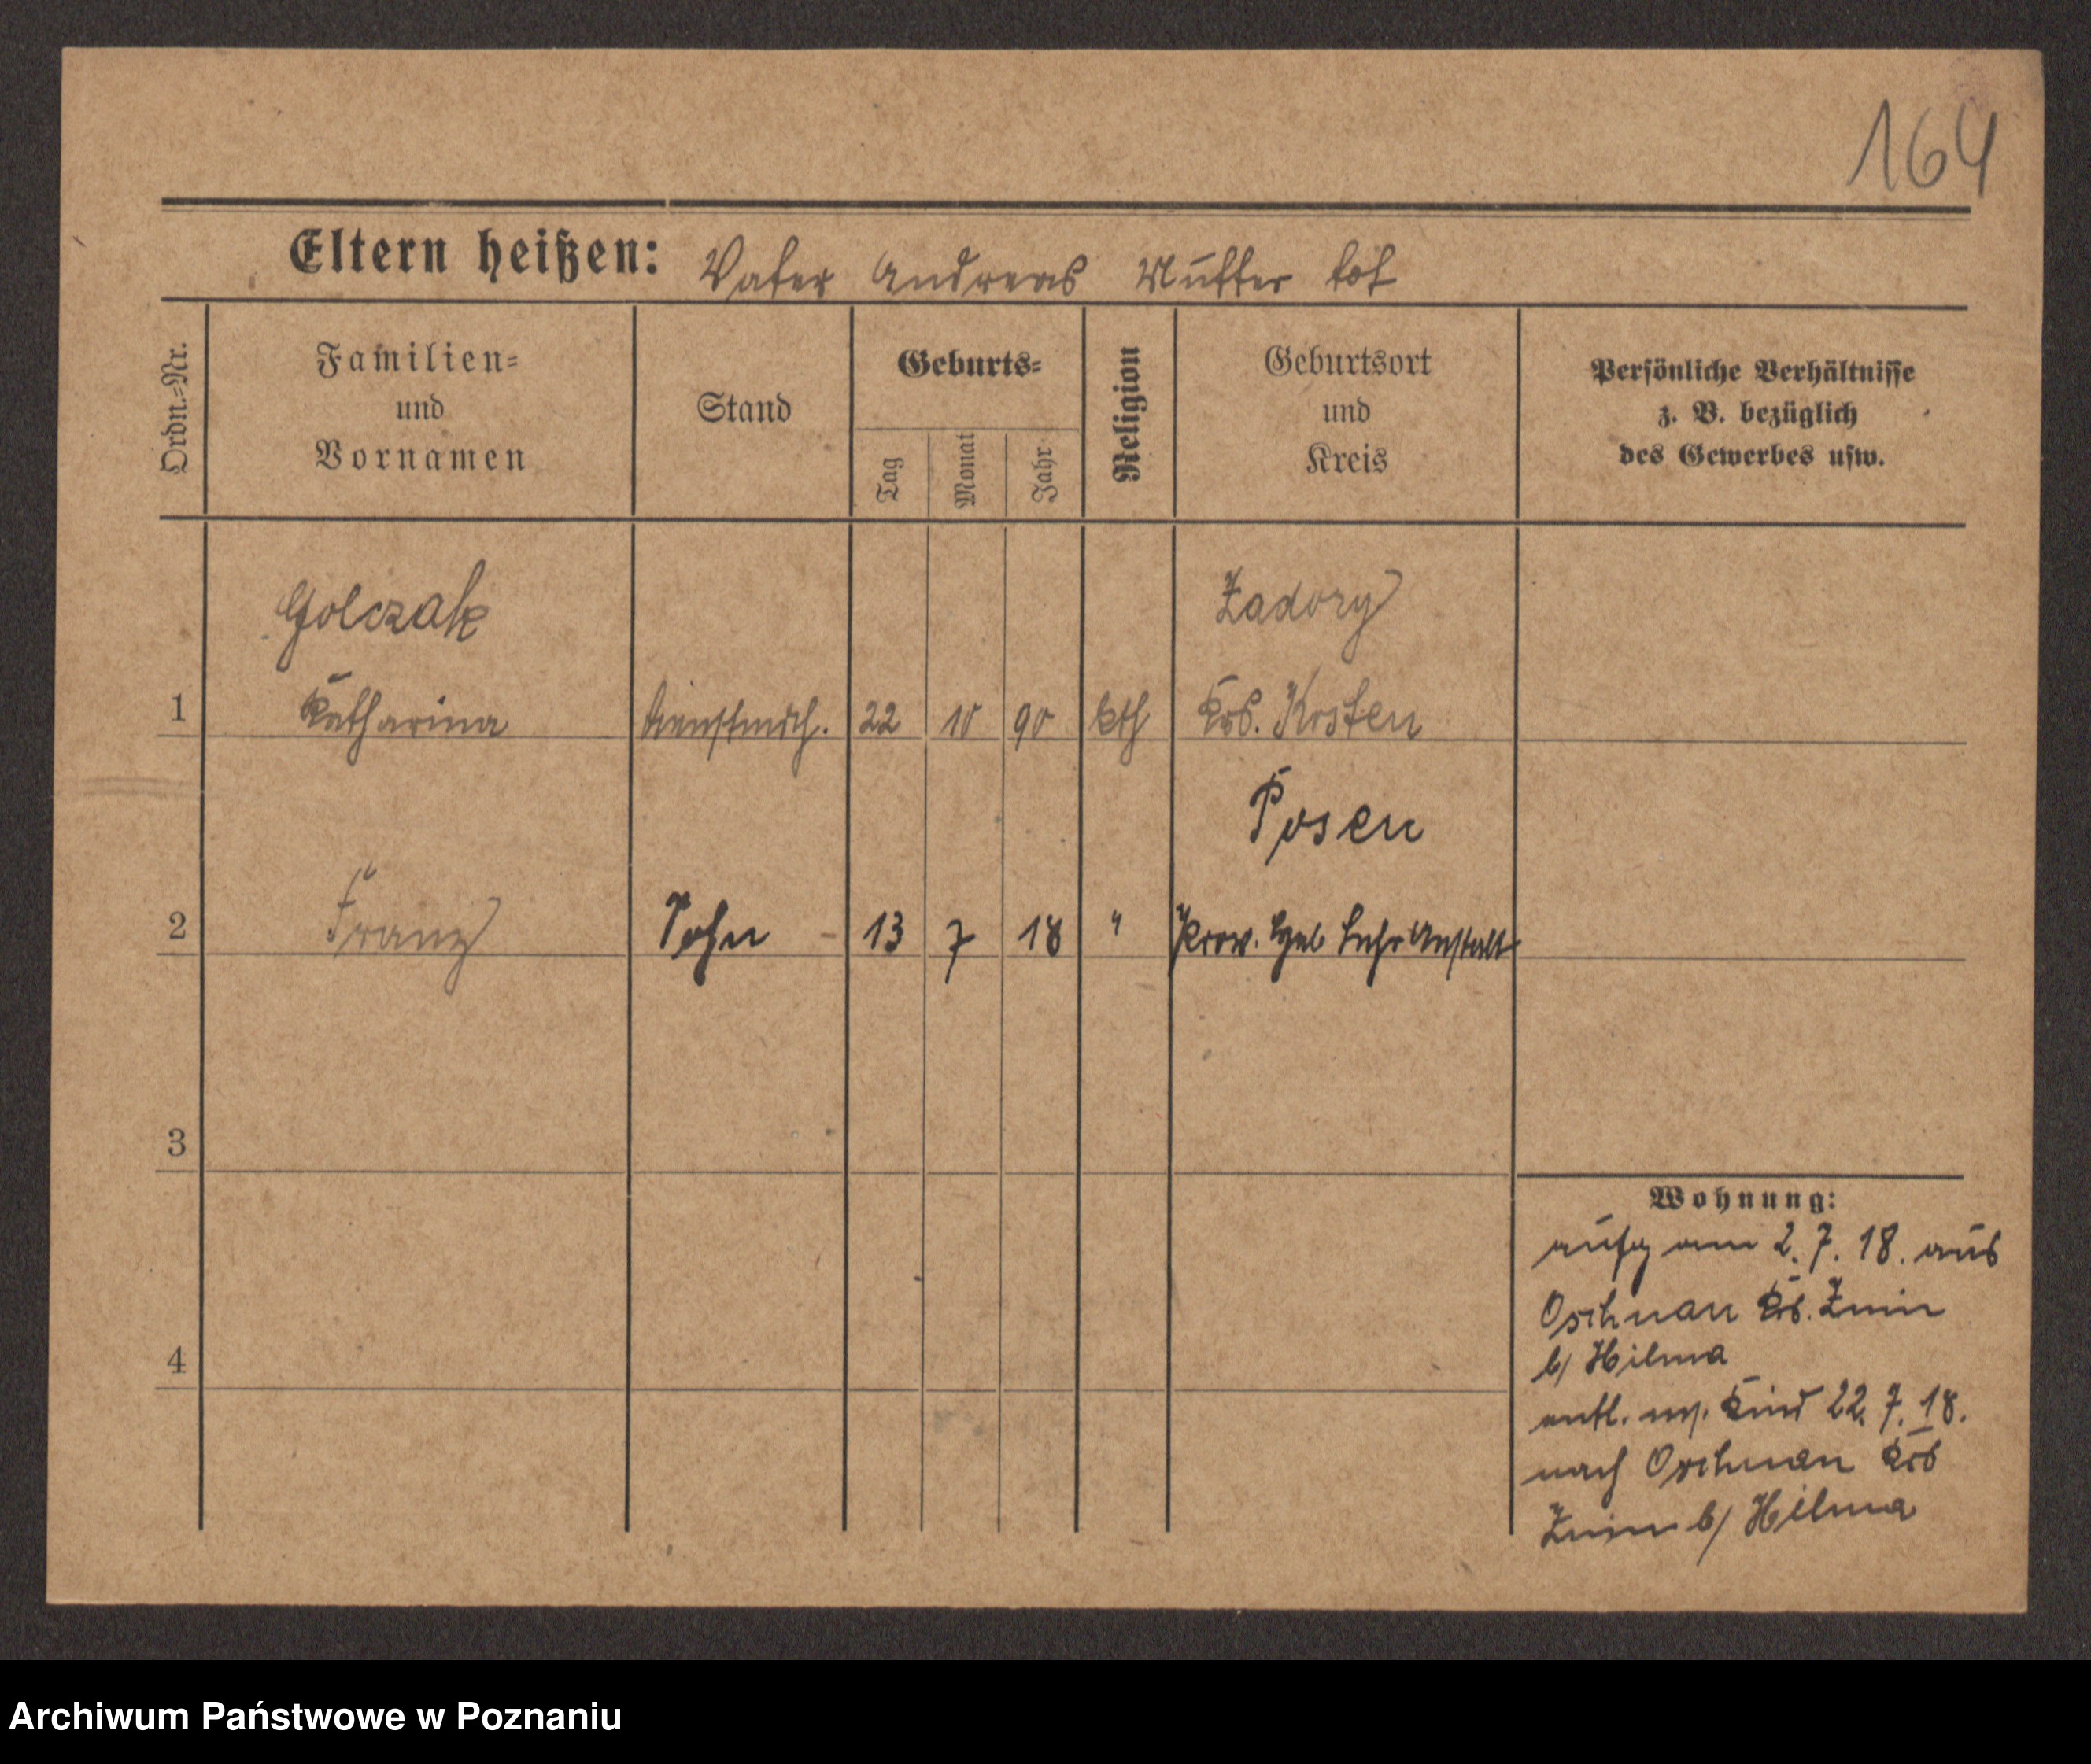 164
Eltern heißen: Vater Andreas Mutter tot
Ordn.=Nr.
Familien=
und
Vornamen
Stand
Geburts=
Tag
Monat
Jahr
Religion
Geburtsort
und
Kreis
Persönliche Verhältnisse
z. B. bezüglich
des Gewerbes usw.
Golczak
Zadory
1 Katharina Dienstmdch. 22 10 90 kth Krs. Kosten
Posen
2 Franz Sohn 13 7 18 " Prov. Geb Lehr Anstalt
3
4
Wohnung:
aufg am 2. 7. 18. aus
Oschnau Krs. Znin
b/ Hilma
entl. m/. Kind 22. 7. 18.
nach Oschnau Krs
Znin b/ Hilma
Archiwum Państwowe w Poznaniu